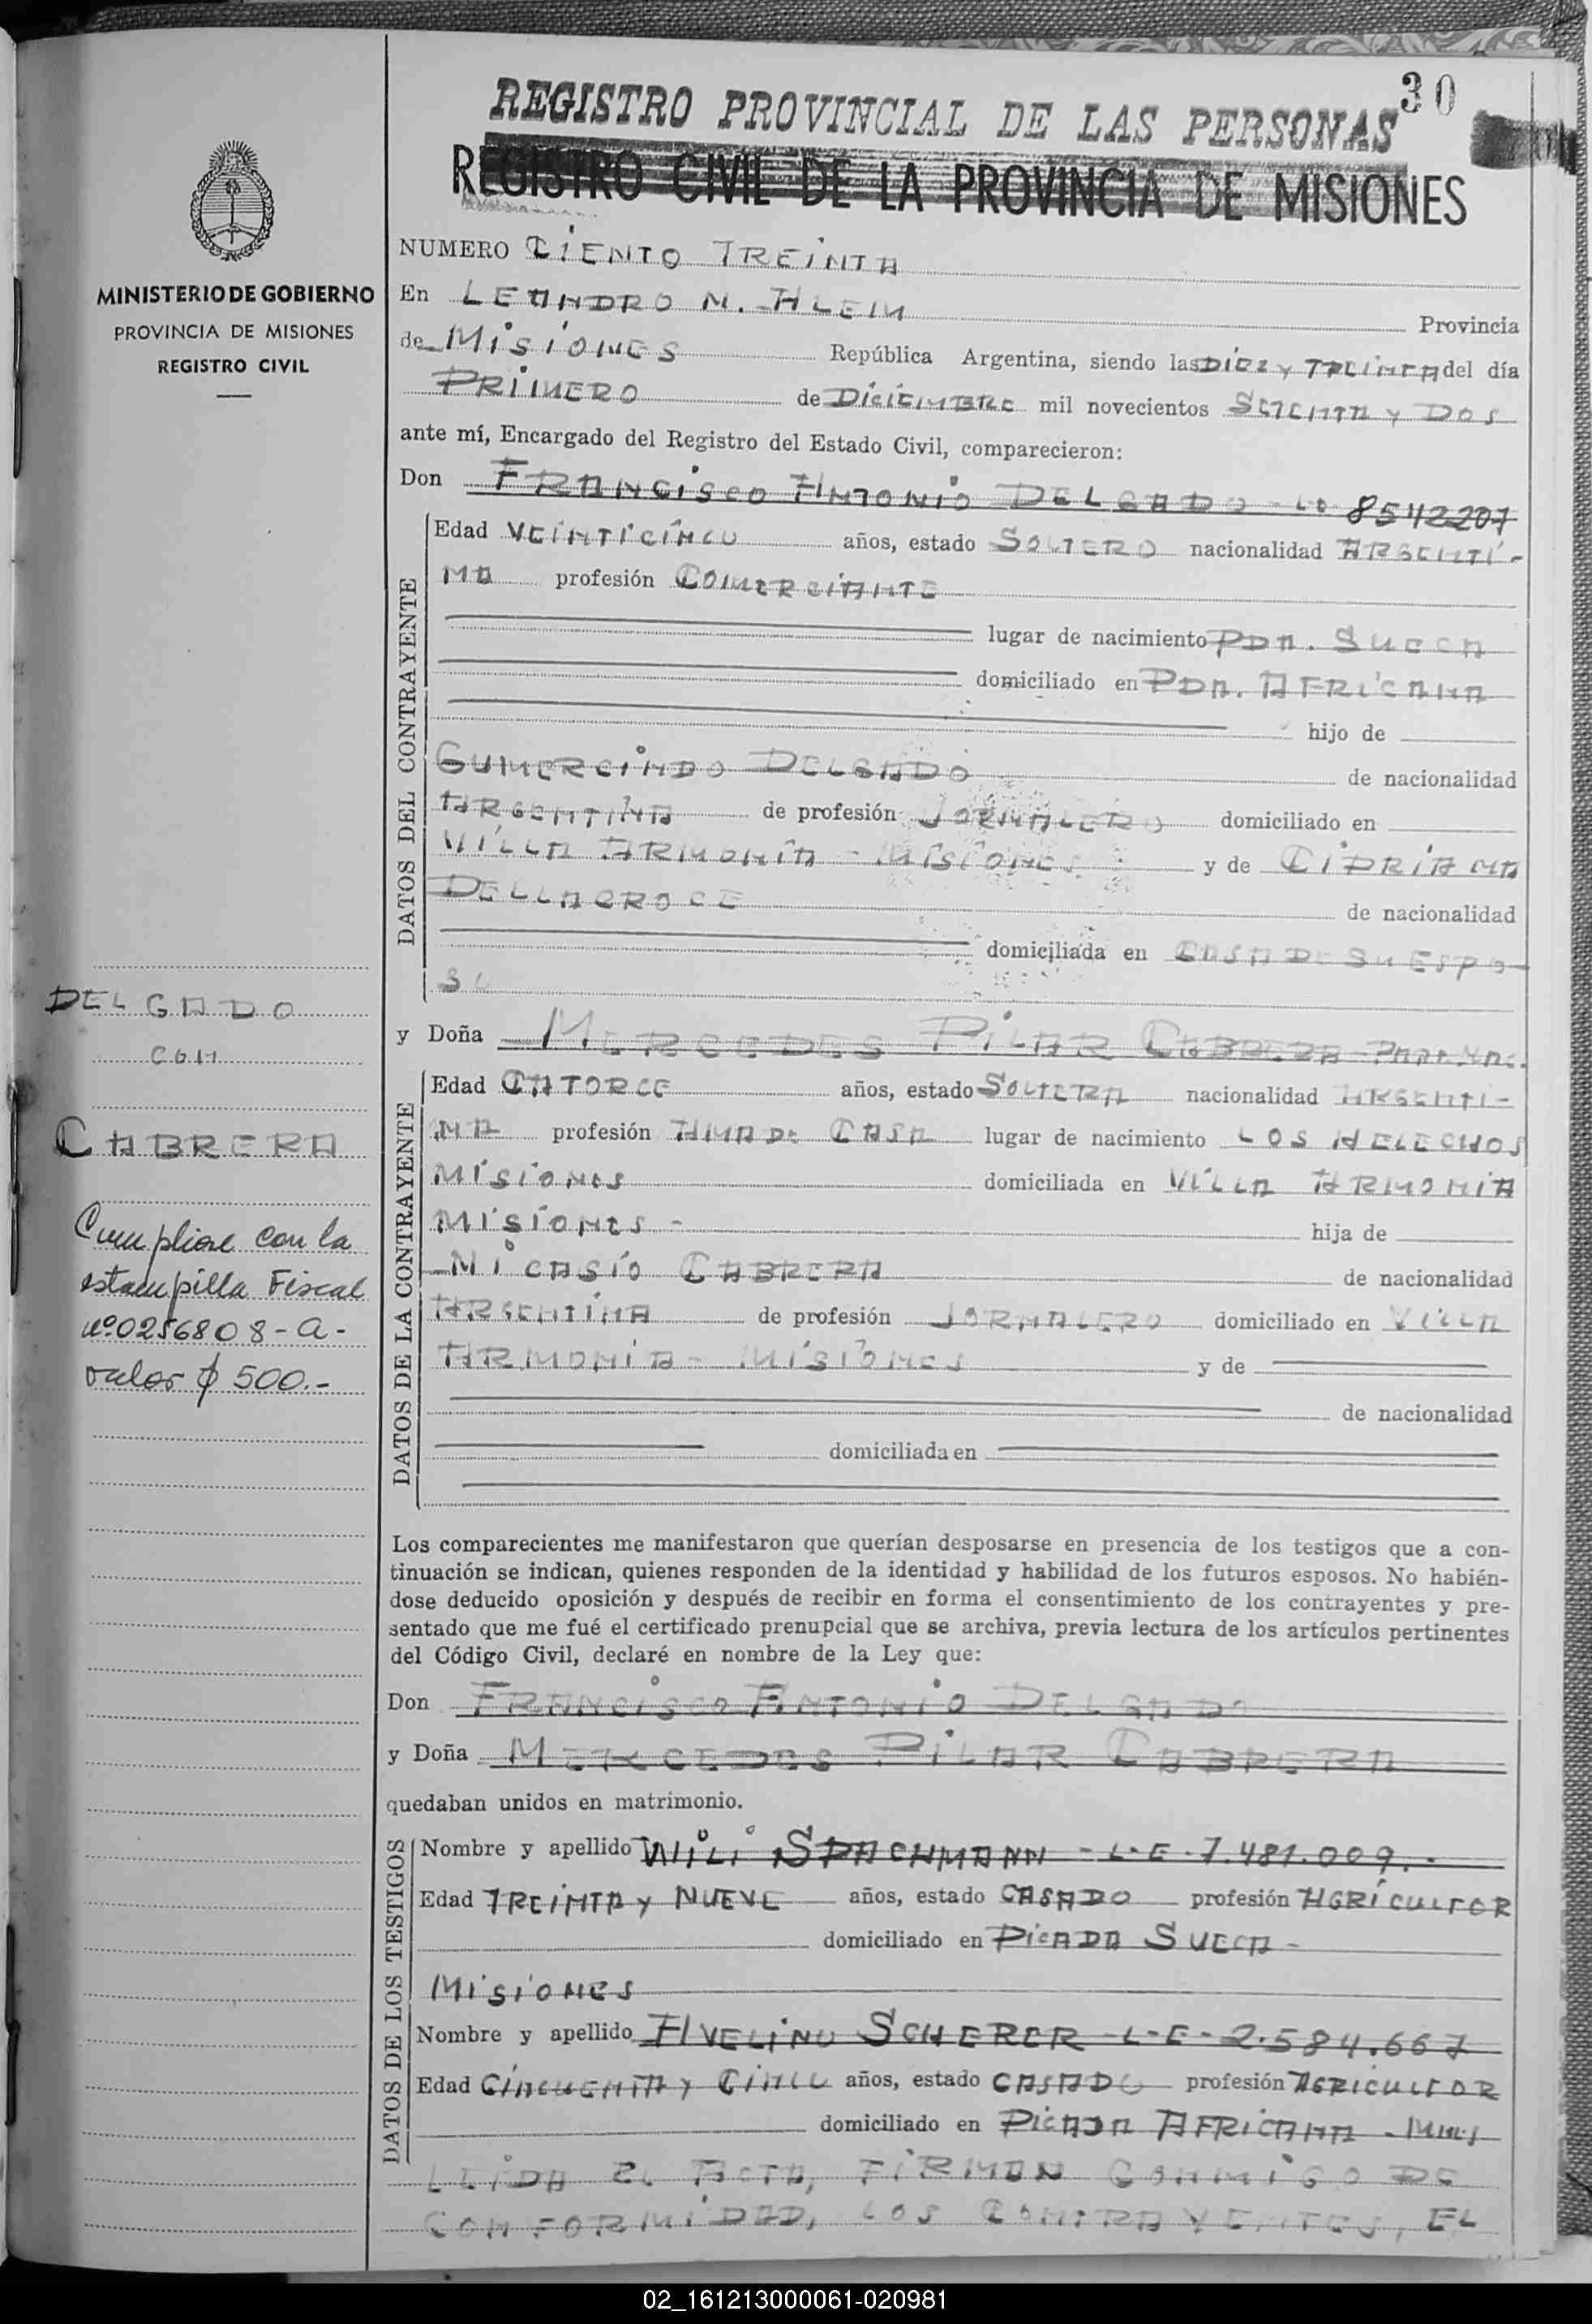 30
REGISTRO PROVINCIAL DE LAS PERSONAS
REGISTRO CIVIL DE LA PROVINCIA DE MISIONES
MINISTERIO DE GOBIERNO
PROVINCIA DE MISIONES
REGISTRO CIVIL
NUMERO CIENTO TREINTA
En LEANDRO N. ALEM Provincia
de MISIONES República Argentina, siendo las DIEZ Y TREINTA del día
PRIMERO de DICIEMBRE mil novecientos SETENTA Y DOS
ante mí, Encargado del Registro del Estado Civil, comparecieron:
Don FRANCISCO ANTONIO DELGADO - 8542207
DATOS DEL CONTRAYENTE
Edad VEINTICINCO años, estado SOLTERO nacionalidad ARGENTI-
NA profesión COMERCIANTE
lugar de nacimiento PDA. SUECA
domiciliado en PDA. AFRICANA
hijo de
GUMERCINDO DELGADO de nacionalidad
ARGENTINA de profesión JORNALERO domiciliado en
VILLA ARMONIA - MISIONES y de CIPRIANA
DELLACROCE de nacionalidad
domiciliada en CASA DE SU ESPO-
SO
DELGADO
CON
CABRERA
Cumpliose con la
estampilla Fiscal
nº 0256808-A-
valor $ 500.-
y Doña MERCEDES PILAR CABRERA
DATOS DE LA CONTRAYENTE
Edad CATORCE años, estado SOLTERA nacionalidad ARGENTI-
NA profesión AMA DE CASA lugar de nacimiento LOS HELECHOS
MISIONES domiciliada en VILLA ARMONIA
MISIONES - hija de
NICASIO CABRERA de nacionalidad
ARGENTINA de profesión JORNALERO domiciliado en VILLA
ARMONIA - MISIONES y de
de nacionalidad
domiciliada en
Los comparecientes me manifestaron que querían desposarse en presencia de los testigos que a con-
tinuación se indican, quienes responden de la identidad y habilidad de los futuros esposos. No habién-
dose deducido oposición y después de recibir en forma el consentimiento de los contrayentes y pre-
sentado que me fué el certificado prenupcial que se archiva, previa lectura de los artículos pertinentes
del Código Civil, declaré en nombre de la Ley que:
Don FRANCISCO ANTONIO DELGADO
y Doña MERCEDES PILAR CABRERA
quedaban unidos en matrimonio.
DATOS DE LOS TESTIGOS
Nombre y apellido WILI SPACHMANN - L-E-7.481.009.-
Edad TREINTA Y NUEVE años, estado CASADO profesión AGRICULTOR
domiciliado en PICADA SUECA -
MISIONES
Nombre y apellido AVELINO SCHERER - L-E-2.584.667
Edad CINCUENTA Y CINCO años, estado CASADO profesión AGRICULTOR
domiciliado en PICADA AFRICANA -
LEIDA EL ACTA, FIRMAN CONMIGO DE
CONFORMIDAD, LOS CONTRAYENTES, EL
02_161213000061-020981